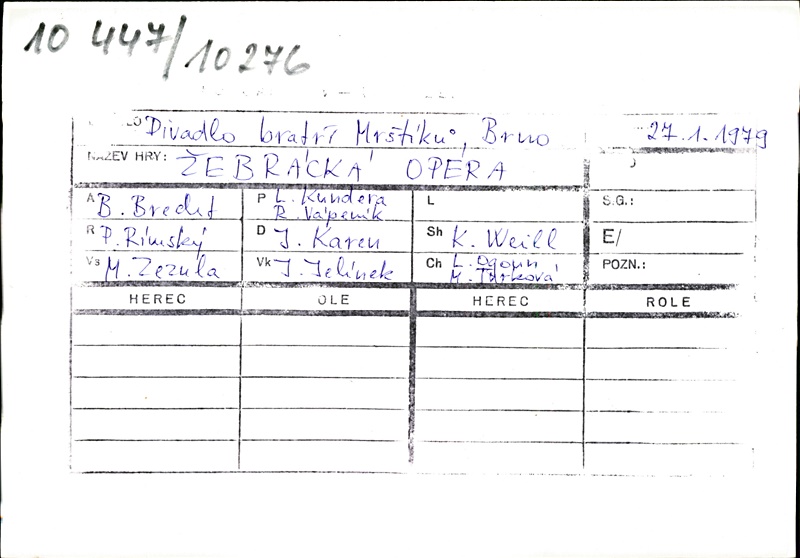 10 447/10276
Divadlo bratří Mrštíků, Brno 27.1.1979
NÁZEV HRY: ŽEBRÁCKÁ OPERA
A B. Brecht P L. Kundera R. Vápeník L S.G.:
R P. Rímský D J. Karen Sh K. Weill E/
Vs M. Zezula Vk J. Jelínek Ch L. Ogoun M. Turková POZN.:
HEREC OLE HEREC ROLE